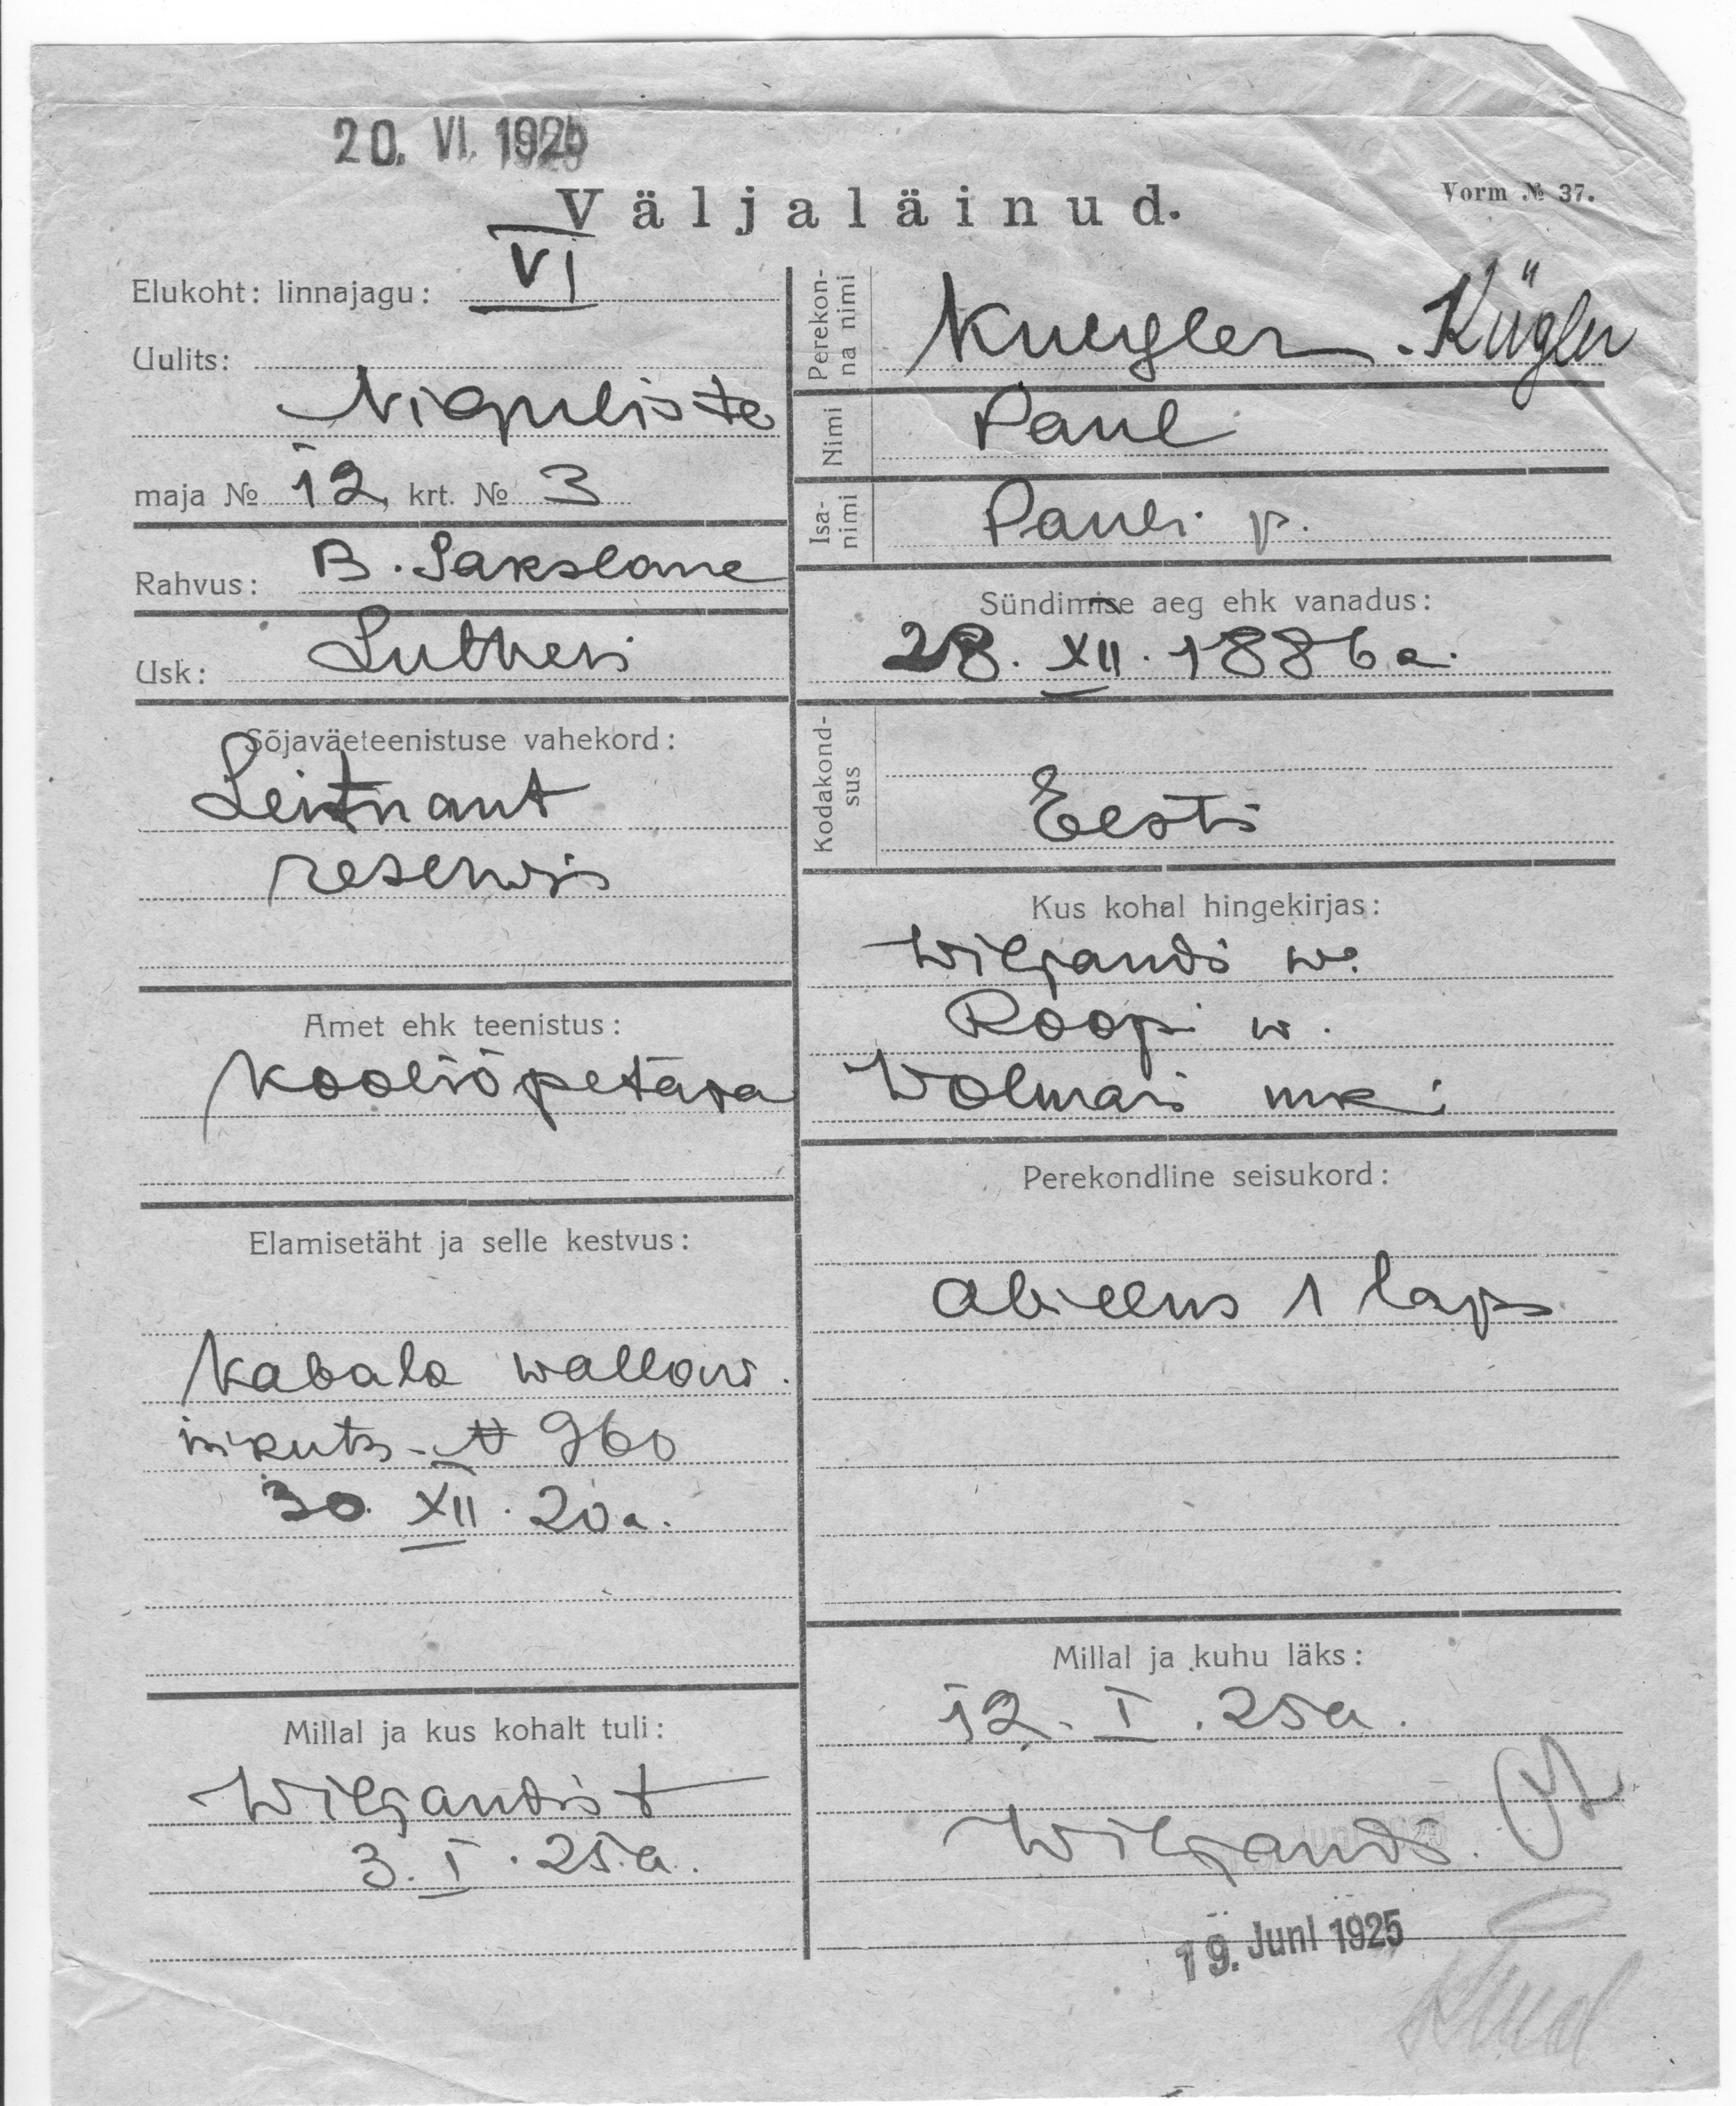 20. VI. 1925
Väljaläinud.
Vorm № 37.
Elukoht: linnajagu: VI
Uulits:
Niguliste
maja № 12, krt. № 3
Rahvus: B. Sakslane
Usk: Lutheri
Sõjaväeteenistuse vahekord:
Leitnant
reserwis
Amet ehk teenistus:
kooliõpetaja
Elamisetäht ja selle kestvus:
Kabala wallaw.
isikuts. № 960
30. XII. 20 a.
Millal ja kus kohalt tuli:
Wiljandist
3. I. 25. a.
Perekon-
na nimi
Kuegler. Kügler
Nimi
Paul
Isa-
nimi
Pauli p.
Sündimise aeg ehk vanadus:
28. XII. 1886 a.
Kodakond-
sus
Eesti
Kus kohal hingekirjas:
Wiljandi w.
Roopi w.
Wolmari mk.
Perekondline seisukord:
abielus 1 laps
Millal ja kuhu läks:
12. I. 25 a.
Wiljandi.
19. Juni 1925